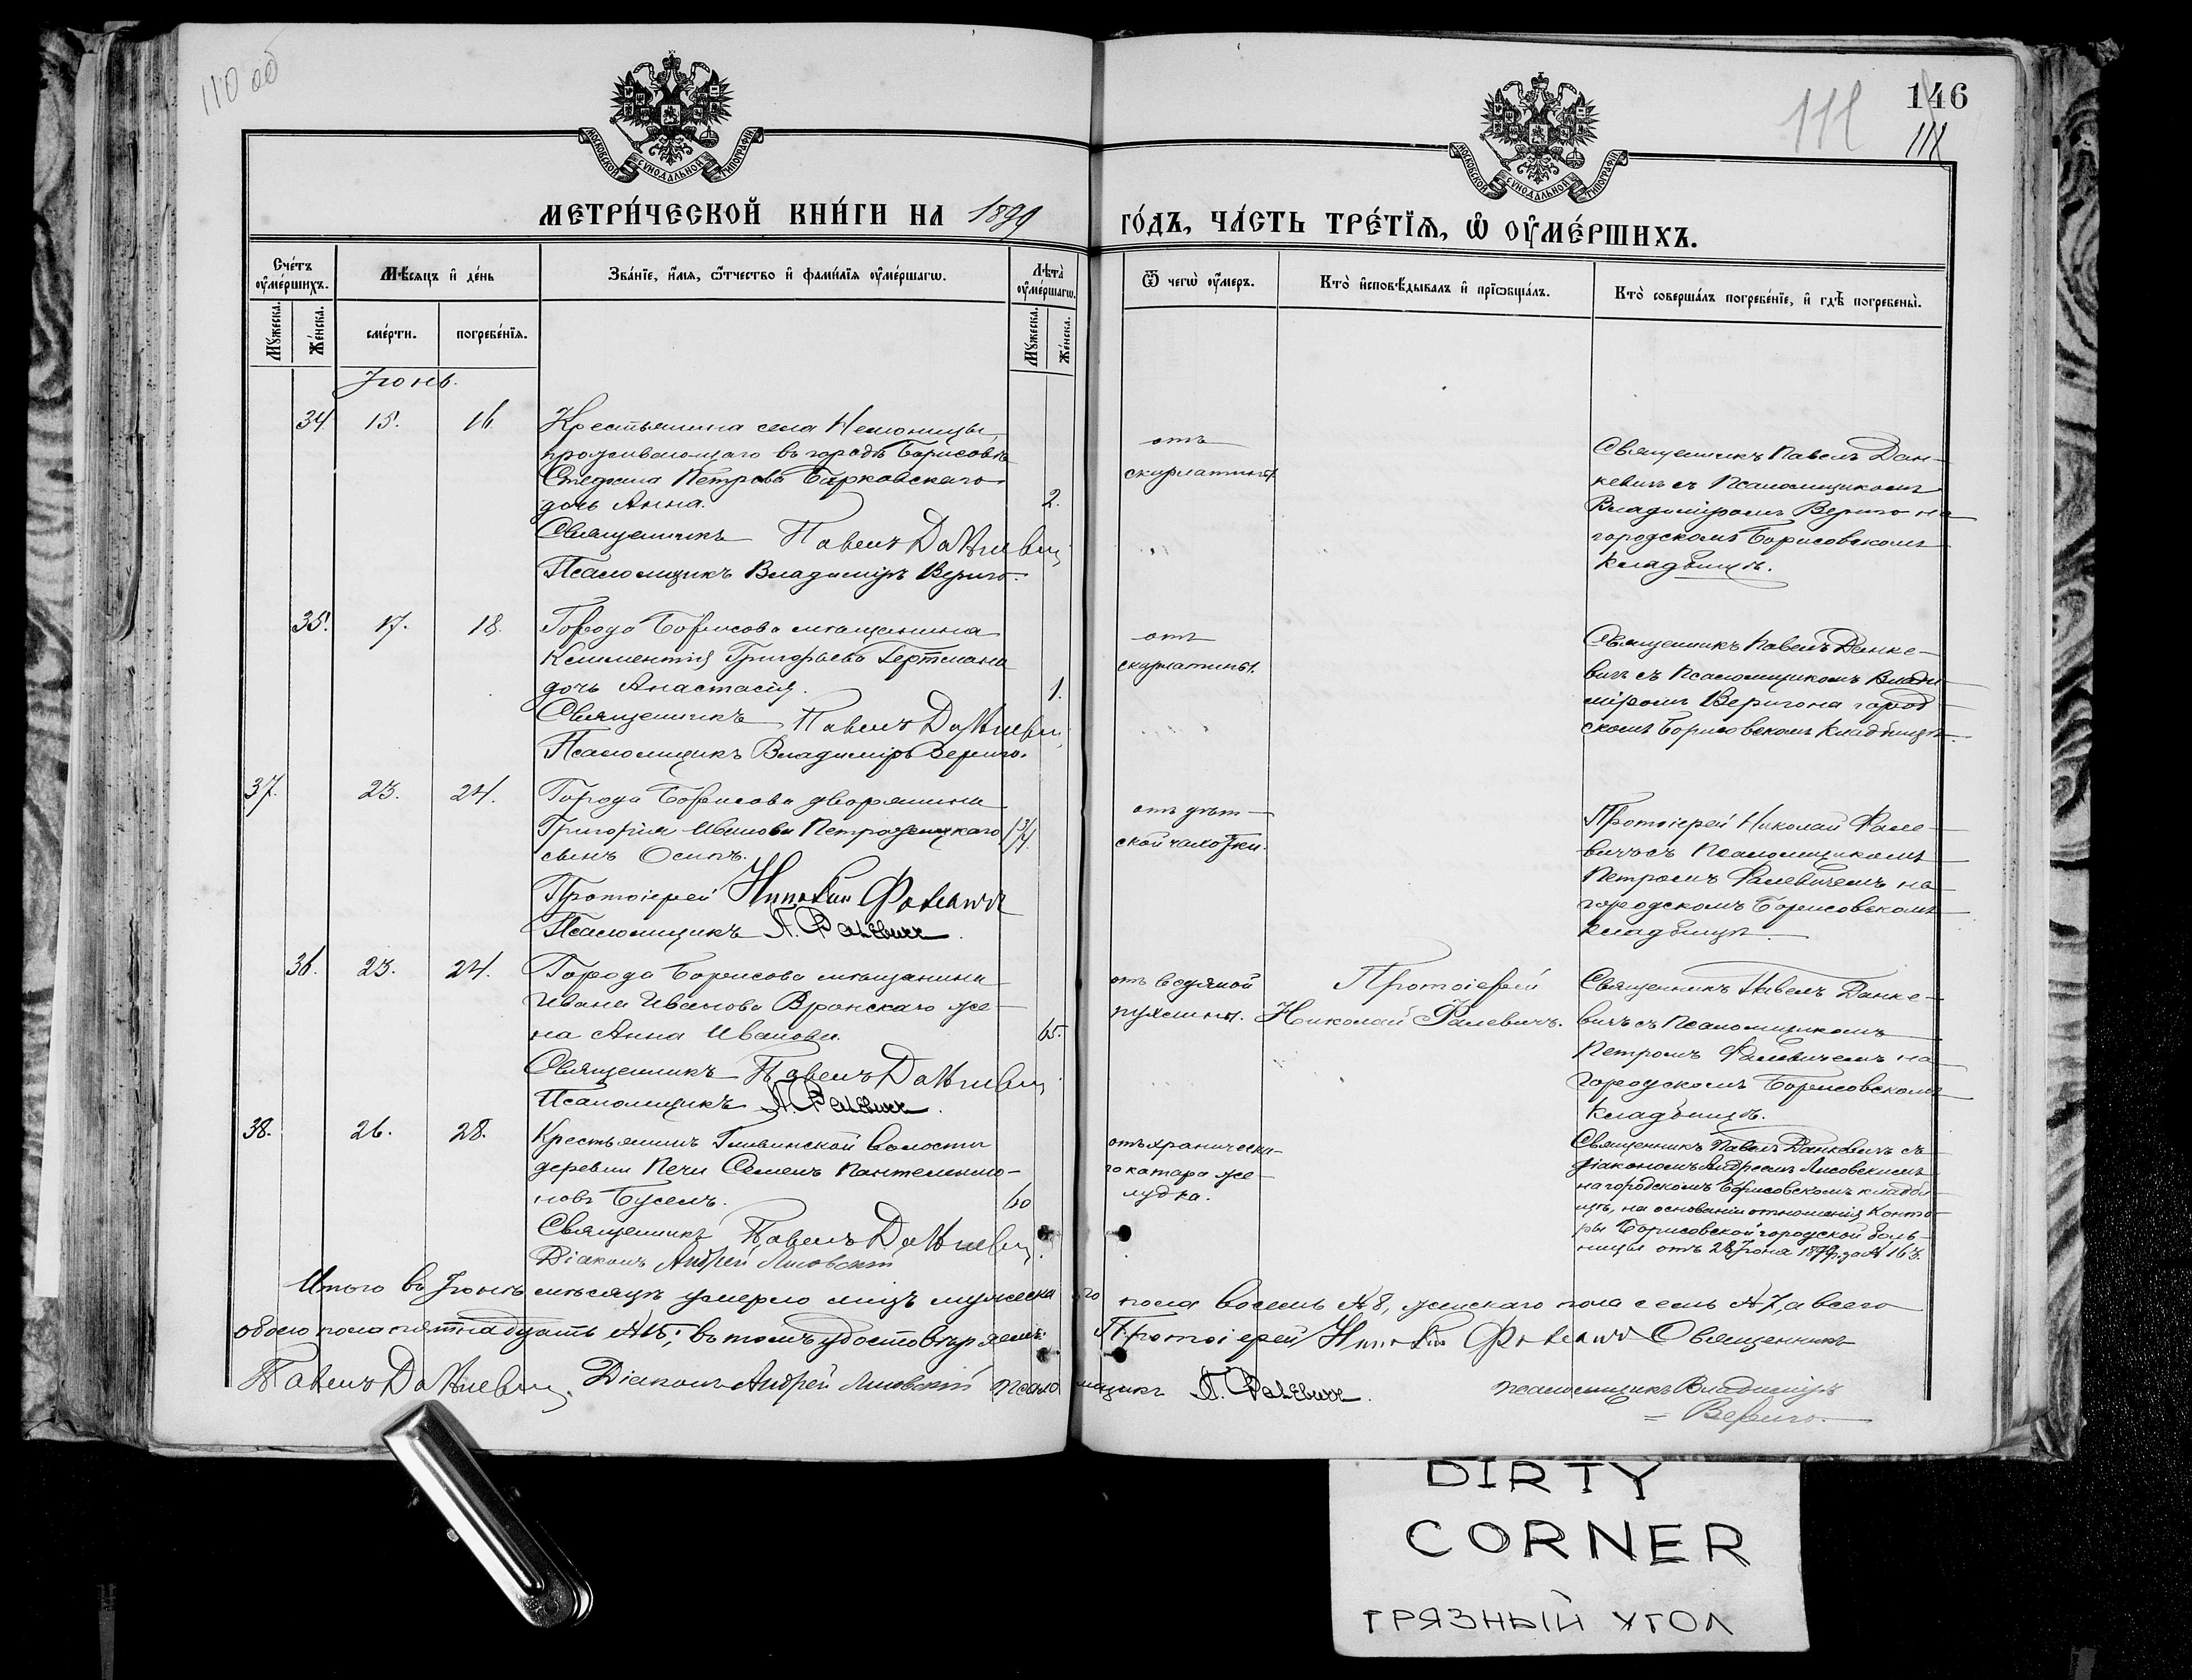 110 об
111
146
111
МОСКОВСКОЙ СУНОДАЛЬНОЙ ТИПОГРАФІИ
МОСКОВСКОЙ СУНОДАЛЬНОЙ ТИПОГРАФІИ
МЕТРИ́ЧЕСКОЙ КНИ́ГИ НА 1899 ГО́ДЪ, ЧА́СТЬ ТРЕ́ТІѦ, Ѡ ОУМЕ́РШИХЪ.
Сче́тъ оумéршихъ.
Мꙋ́жеска.
Же́нска.
Мѣ́сяцъ и де́нь
сме́рти.
погребе́нїѧ.
Зва́нїе, и́мѧ, ѿтчество и фамн́лїѧ оумéршагѡ.
Лѣта̀ оумéршагѡ.
Мꙋ́жеска.
Же́нска.
Ѿ чегѡ̀ оу́меръ.
Кто̀ исповѣ́дывалъ и прїѡбща́лъ.
Кто̀ соверша́лъ погребе́нїе, и гдѣ̀ погребены̀.
Іюнь.
34 15. 16 Крестьянина села Немоницы,
проживающаго въ городѣ Борисовѣ
Стефана Петрова Барковскаго
дочь Анна. 2.
Священникъ Павелъ Данкевич
Псаломщикъ Владиміръ Вериго.
отъ
скарлатины
Священникъ Павелъ Дан-
кевичъ съ Псаломщикомъ
Владиміромъ Вериго на
городскомъ Борисовскомъ
кладбищѣ.
35. 17. 18. Города Борисова мѣщанина
Климентія Григорьева Гертмана
дочь Анастасія. 1.
Священникъ Павелъ Данкевич
Псаломщикъ Владиміръ Вериго.
отъ
скарлатины.
Священникъ Павелъ Данке-
вичъ съ Псаломщикомъ Влади-
міромъ Вериго на город-
скомъ Борисовскомъ кладбищѣ.
37. 23. 24. Города Борисова дворянина
Григорія Иванова 1 3/4
сынъ Осипъ.
Протоіерей Николай Фалевичъ
Псаломщикъ П. Фалевичъ.
отъ дѣт-
ской чахотки.
Протоіерей Николай Фале-
вичъ съ Псаломщикомъ
Петромъ Фалевичемъ на
городскомъ Борисовскомъ
кладбищѣ.
36. 23. 24. Города Борисова мѣщанина
Ивана Иванова Вронскаго же-
на Анна Иванова. 65.
Священникъ Павелъ Данкевич
Псаломщикъ П. Фалевичъ.
отъ водяной
пухлины.
Протоіерей
Николай Фалевичъ.
Священникъ Павелъ Данке-
вичъ съ Псаломщикомъ
Петромъ Фалевичемъ на
Городскомъ Борисовскомъ
кладбищѣ.
38. 26. 28. Крестьянинъ Гливинской волости
деревни Печи Семенъ Пантелеимо-
новъ Буселъ. 60
Священникъ Павелъ Данкевич.
Діаконъ Андрей Лисовскій
отъ хроническа-
го катара же-
лудка.
Священникъ Павелъ Данкевичъ съ
діакономъ Андреемъ Лисовскимъ
на городскомъ Борисовскомъ кладби-
щѣ, на основаніи отношенія Конто-
ры Борисовской городской боль-
ницы отъ 28 Іюня 1899 года № 163.
Итого въ Іюнѣ мѣсяцѣ умерло лицъ мужеска го пола восемь № 8, женскаго пола семь № 7, а всего
обоего пола пятнадцать № 15; въ томъ удостовѣряемъ: Протоіерей Николай Фалевичъ Священникъ
Павелъ Данкевич. Діаконъ Андрей Лисовскій Псало мщикъ П. Фалевичъ. псаломщикъ Владиміръ
= Вериго.
DIRTY
CORNER
ГРЯЗНЫЙ УГОЛ